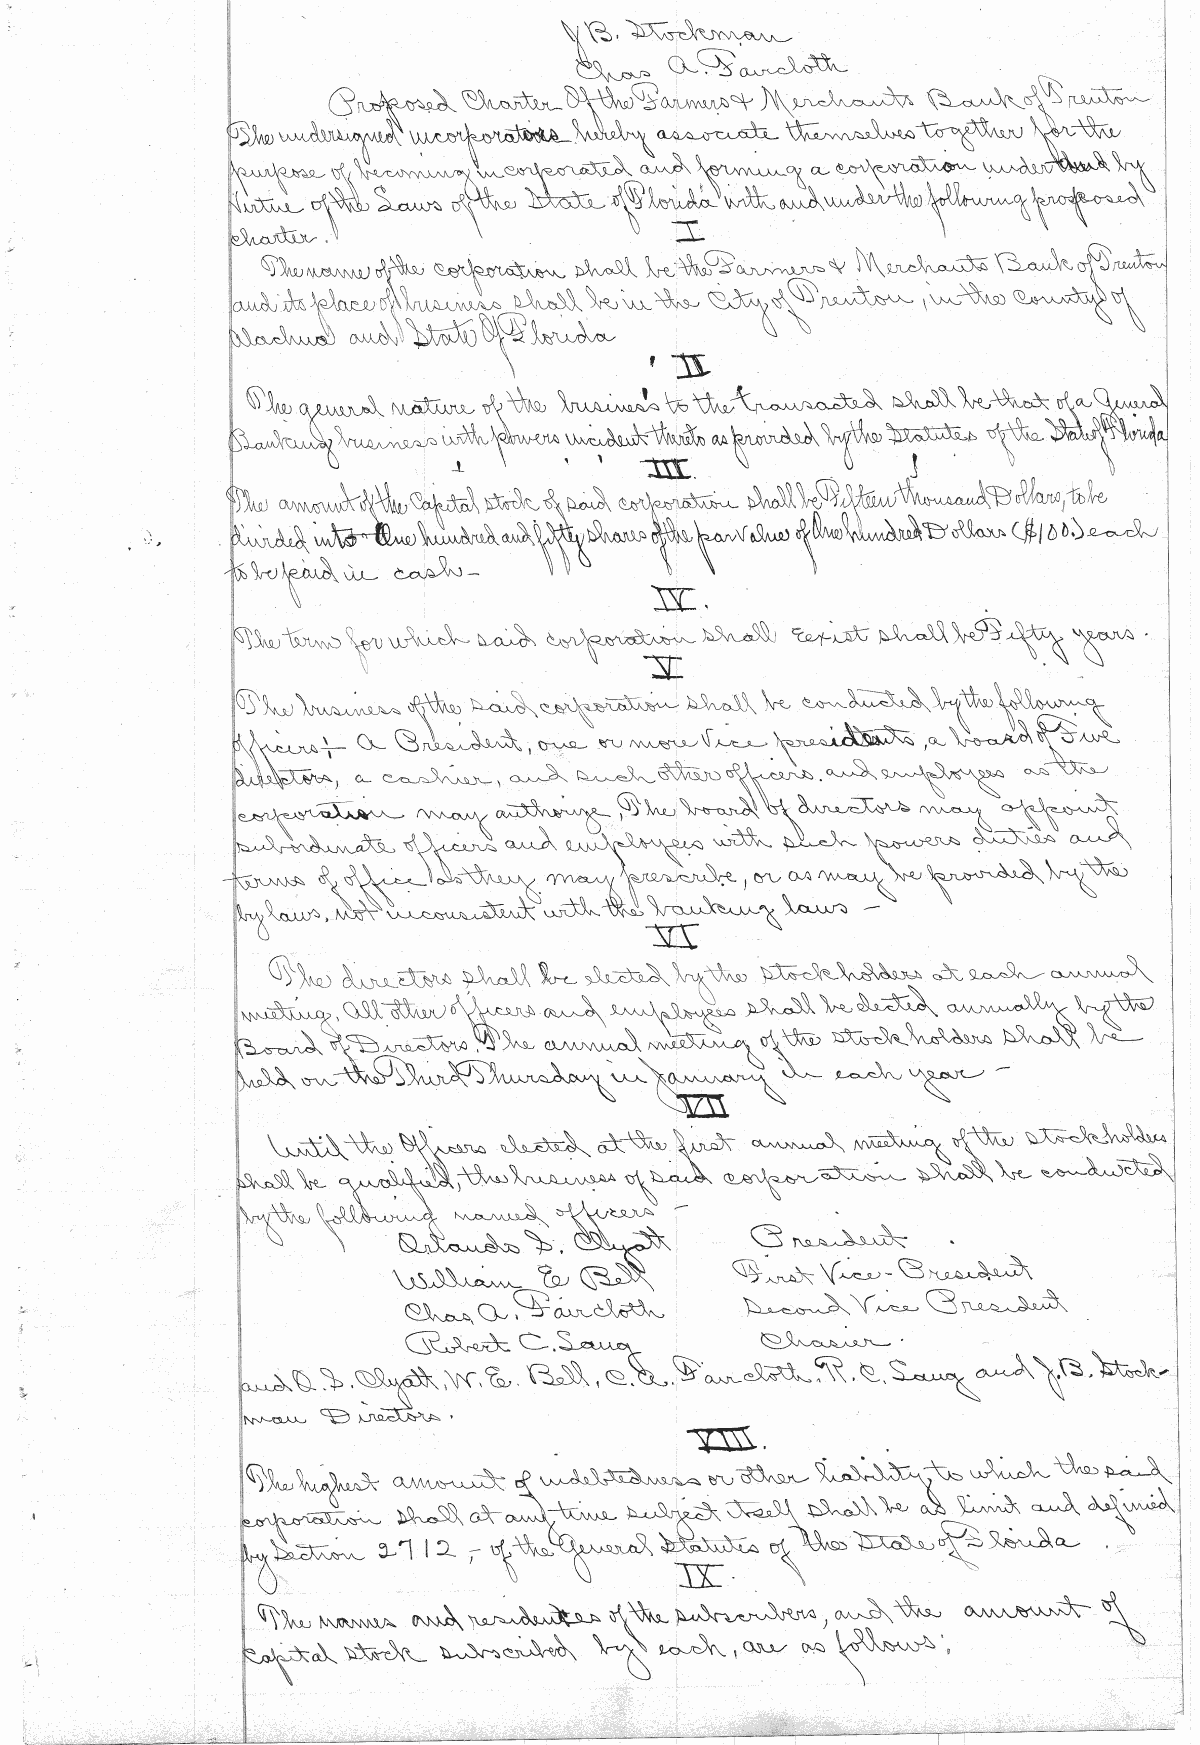 J B. Stockman
Chas A. Faircloth
Proposed Charter Of the Farmers & Merchants Bank of Trenton
The undersigned incorporators hereby associate themselves together for the
purpose of becoming incorporated and forming a corporation under and by
Virtue of the Laws of the State of Florida with and under the following proposed
charter.
I
The name of the corporation shall be the Farmers & Merchants Bank of Trenton
and its place of business shall be in the City of Trenton, in the county of
Alachua and State Of Florida
II
The general nature of the business to the transacted shall be that of a General
Banking business with powers incident thereto as provided by the Statutes of the State of Florida
III.
The amount of the Capital stock of said corporation shall be Fifteen thousand Dollars, to be
divided into One hundred and fifty shares of the par value of One hundred Dollars ($100.) each
to be paid in cash -
IV.
The term for which said corporation shall Eexist shall be Fifty years.
V
The business of the said corporation shall be conducted by the following
officers; - A President, one or more Vice presidents, a board of Five
directors, a cashier, and such other officers. and employees as the
corporation may authorize, The board of directors may appoint
subordinate officers and employees with such powers duties and
terms of office as they may prescribe, or as may be provided by the
by laws, not inconsistent with the banking laws -
VI
The directors shall be elected by the stockholders at each annual
meeting, All other officers and employees shall be elected annually by the
Board of Directors. The annual meeting of the stockholders shall be
held on the Third Thursday in January in each year -
VII
Until the Officers elected at the first annual meeting of the stockholders
shall be qualified, the business of said corporation shall be conducted
by the following named officers -
Orlando S. Clyatt President
William E Bell First Vice-President
Chas A. Faircloth Second Vice President
Robert C. Saug Chasier.
and O. S. Clyatt, W. E. Bell, C. A. Faircloth, R. C. Saug and J. B. Stock-
man Directors.
VIII.
The highest amount of indebtedness or other liability to which the said
corporation shall at any time subject itself shall be as limit and defined
by Section 2712, - of the General Statutes of the State of Florida.
IX.
The names and residences of the subscribers, and the amount of
capital stock subscribed by each, are as follows;